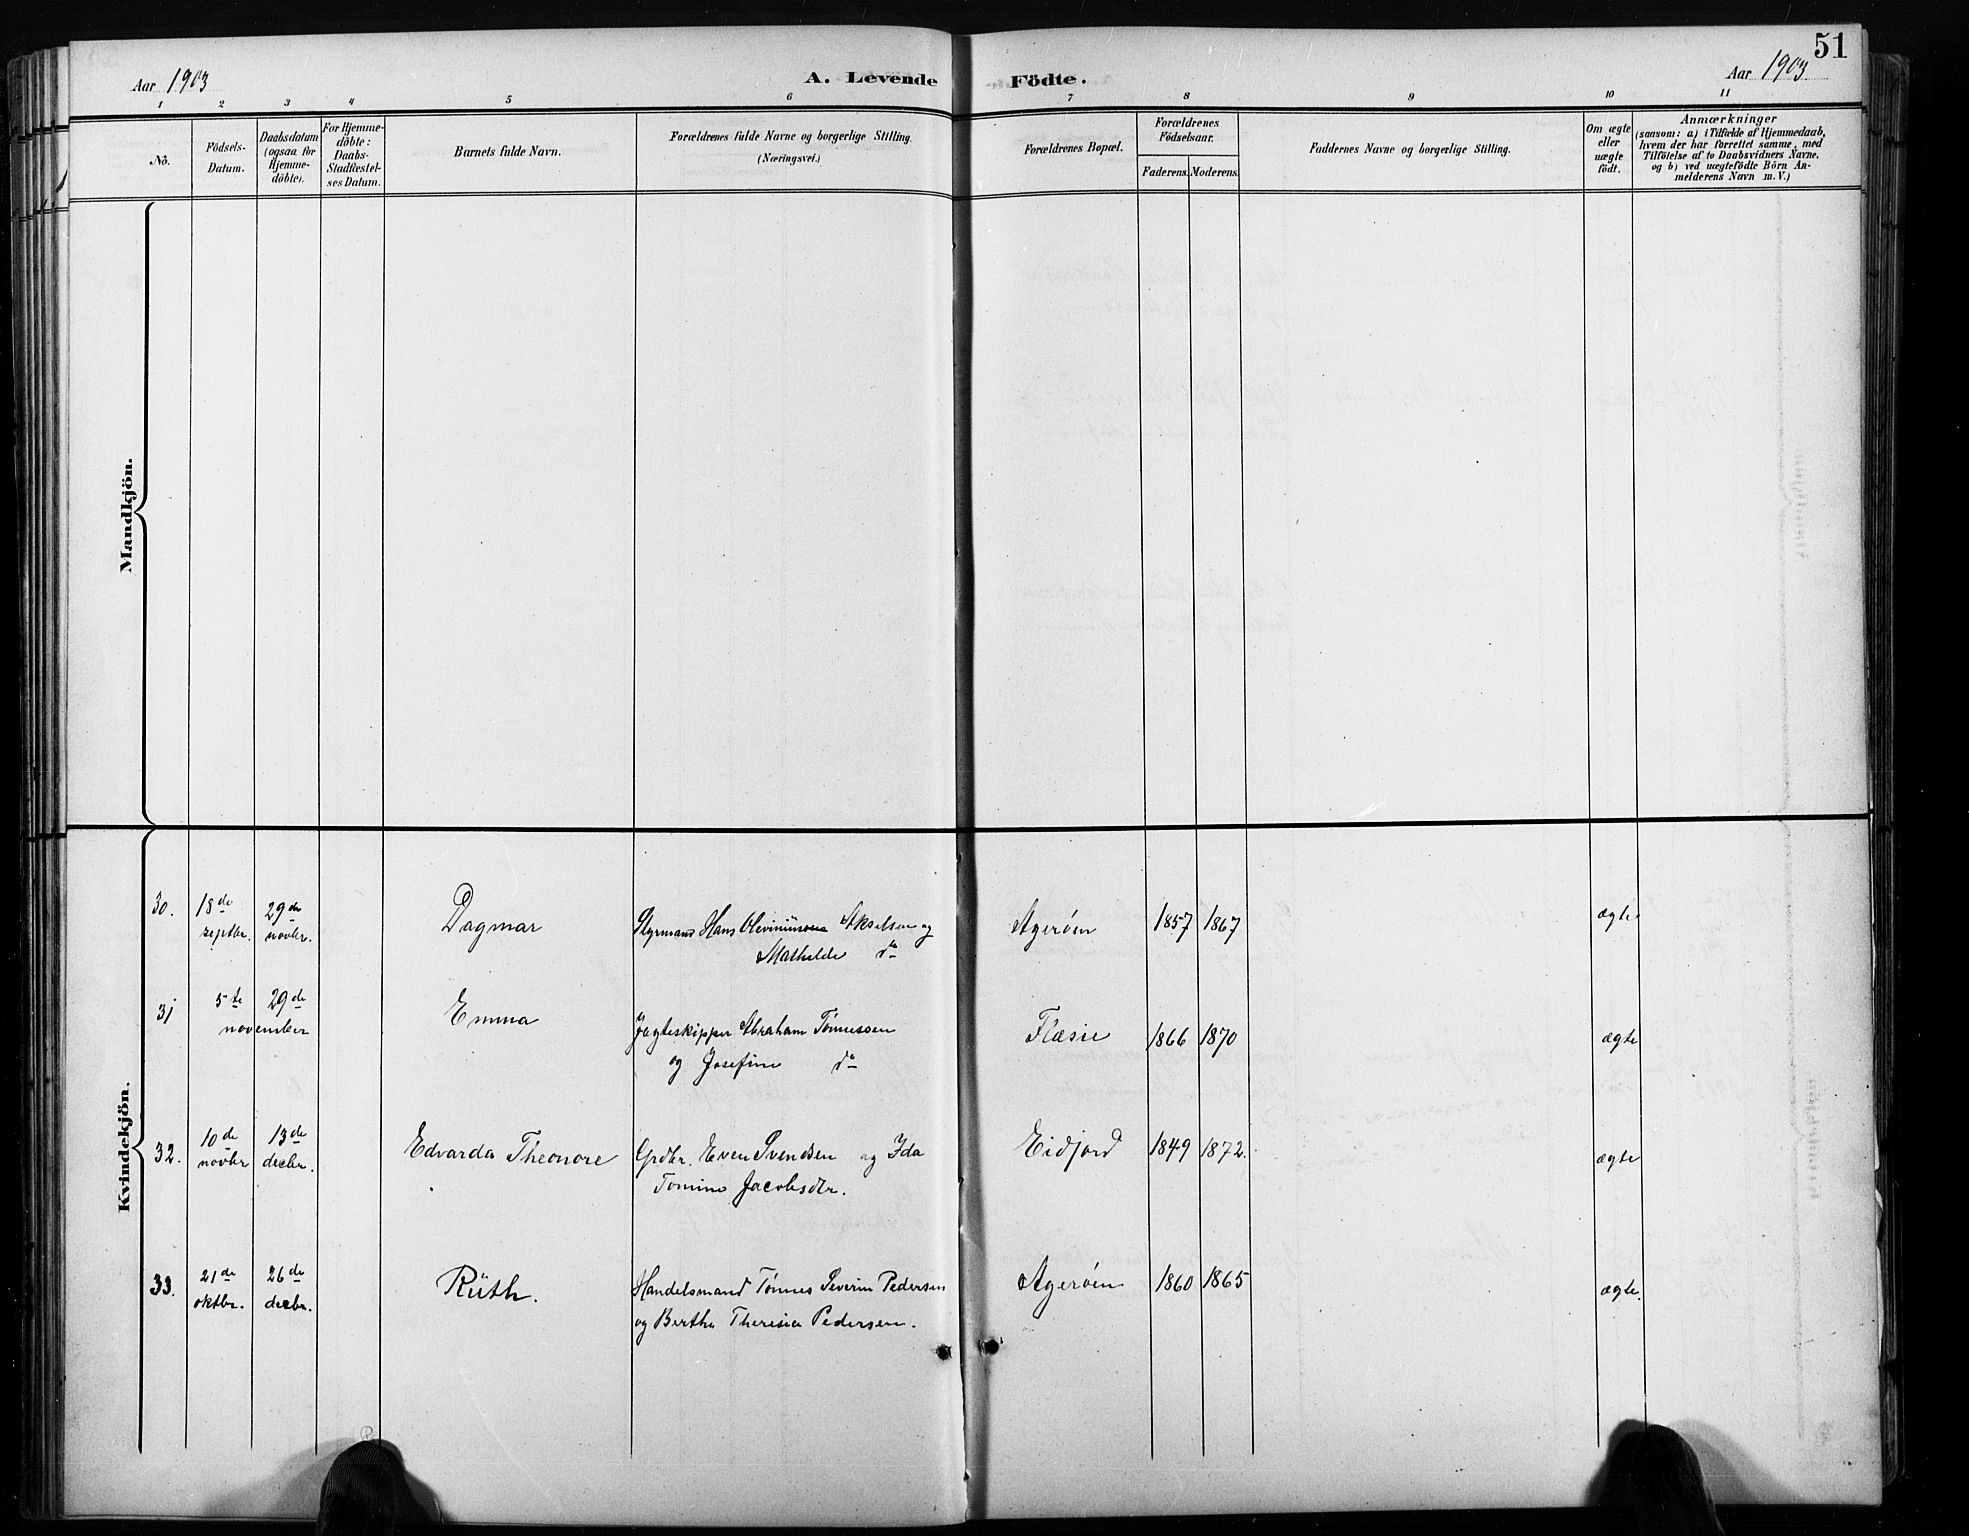 51
Aar 1903
A. Levende Födte.
Aar 1903
1 2 3 4 5 6 7 8 9 10 11
No.
Födsels-
Datum.
Daabsdatum
(ogsaa for
Hjemme-
döbte).
For Hjemme-
döbte:
Daabs-
Stadfæstel-
ses Datum.
Barnets fulde Navn.
Forældrenes fulde Navne og borgerlige Stilling.
(Næringsvei.)
Forældrenes Bopæl.
Forældrenes
Födselsaar.
Faderens. Moderens.
Faddernes Navne og borgerlige Stilling.
Om ægte
eller
uægte
födt.
Anmærkninger
(saasom: a) i Tilfælde af Hjemmedaab,
hvem der har forrettet samme, med
Tilföielse af to Daabsvidners Navne,
og b) ved uægtefödte Börn An-
melderens Navn m. V.)
Mandkjön.
Kvindekjön.
30. 18de septbr. 29de novbr. Dagmar Styrmand Hans Akselsen og Agerøen 1857 1867 ægte
Mathilde do
31 5te 29de november Emma Jægteskipper Abraham Tønnessen Flæsie 1866 1870 ægte
og Josefine do
32. 10de novbr 13de decbr. Edvarda Theonore Grdbr. Even Svendsen og Ida Eidjord 1849 1872. ægte
Tomine Jacobsdtr.
33. 21de oktbr. 26de decbr. Rüth. Handelsmand Tønnes Severin Pedersen Agerøen 1860 1865 ægte.
og Bertha Theresia Pedersen.